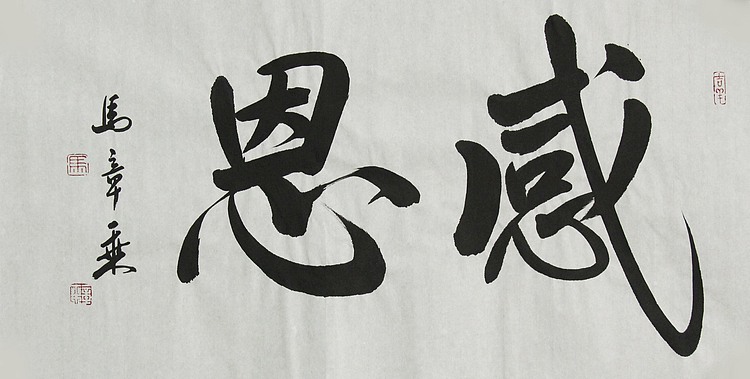 感恩
馬章乘